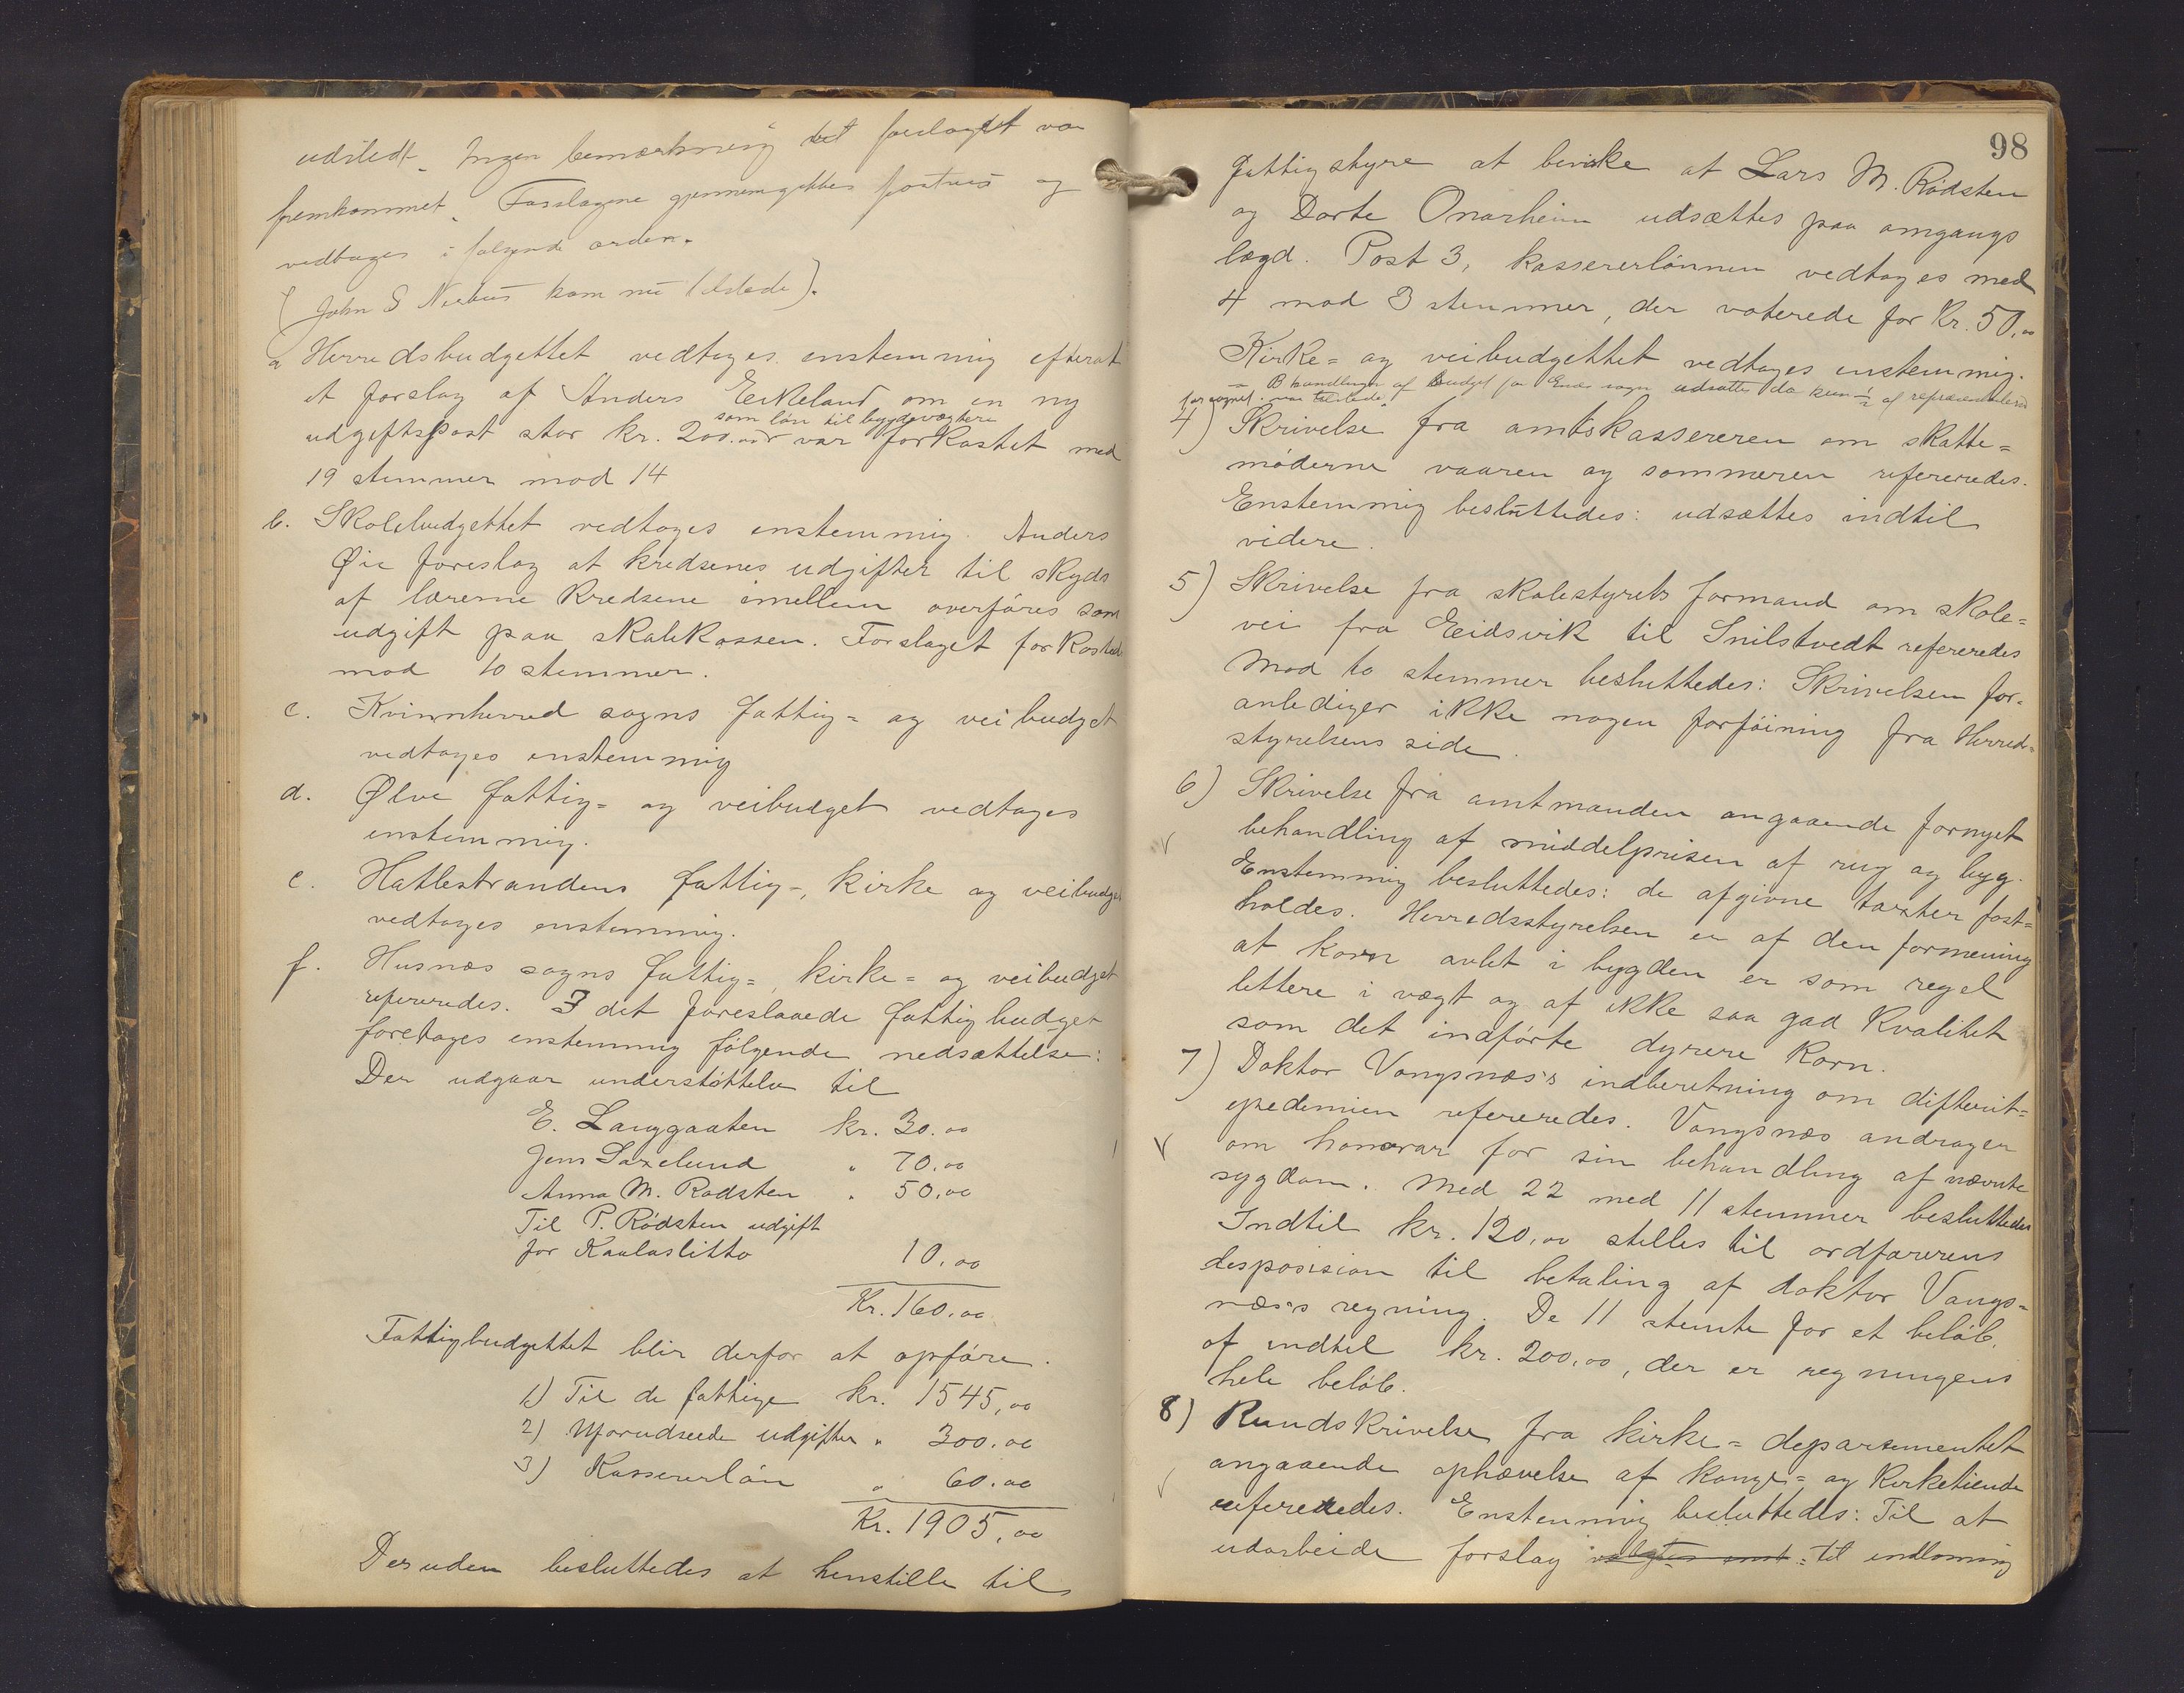 udstedt. Ingen bemærkning til forslaget var
fremkommet. Forslagene gjennemgikkes postvis og
vedtages i følgende orden.
(John S Neehus kom nu tilstede).
a Herredsbudgettet vedtoges enstemmig efterat
et forslag af Anders Eekeland om en ny
som løn til bygdevægtere
udgiftspost stor kr. 200.00 var forkastet med
19 stemmer mod 14
b. Skolebudgettet vedtoges enstemmig. Anders
Øie foreslog at kredsenes udgifter til skyds
af lærerne kredsene imellem overføres som
udgift paa skolekassen. Forslaget forkasted
mod 10 stemmer.
c. Kvinnherred sogns fattig= og veibudget
vedtoges enstemmig
d. Ølve fattig= og veibudget vedtoges
enstemmig.
e. Hatlestrandens fattig-, kirke og veibudget
vedtoges enstemmig.
f. Husnæs sogns fattig=, kirke= og veibudget
refereredes. I det foreslaaede fattigbudget
foretoges enstemmig følgende nedsættelse:
Der udgaar understøttelse til
E. Langgaaten kr. 30.00
Jens Saxelund " 70.00
Anna M. Rødsten " 50.00
Til P. Rødsten udgift
for Kaulaslitto 10.00
Kr. 160.00
Fattigbudgettet blir derfor at opføre.
1) Til de fattige kr. 1545,00
2) Uforudseede udgifter " 300.00
3) Kassererløn " 60.00
Kr. 1905,00
Desuden besluttedes at henstille til
98
fattigstyre at bevirke at Lars M. Rødsten
og Dorte Onarheim udsættes paa omgangs
lægd. Post 3, kassererlønnen vedtoges med
4 mod 3 stemmer, der voterede for Kr. 50,00
Kirke= og veibudgettet vedtoges enstemmig.
= Bhandlingen af Budget for Enæs sogn udsættes da kun ½ af repræsentanterne
for sognet var tilstede.
4) Skrivelse fra amtskassereren om skatte=
møderne vaaren og sommeren refereredes.
Enstemmig besluttedes: udsættes indtil
videre.
5) Skrivelse fra skolestyrets formand om skole=
vei fra Eeidsvik til Snilstvedt refereredes
Mod to stemmer besluttedes: Skrivelsen for=
anlediger ikke nogen forføining fra Herreds=
styrelsens side.
6) Skrivelse fra amtmanden angaaende fornyet
behandling af middelprisen af rug og byg.
Enstemmig besluttedes: de afgivne taxter fast=
holdes. Herredsstyrelsen er af den formening
at korn avlet i bygden er som regel
lettere i vægt og af ikke saa god kvalitet
som det indførte dyrere korn.
7) Doktor Vangsnæs's indberetning om difterit=
epedemien refereredes. Vangsnæs andrager
om honorar for sin behandling af nævnte
sygdom. Med 22 mod 11 stemmer besluttedes
Indtil kr. 120,00 stilles til ordførerens
desposision til betaling af doktor Vangs=
næs's regning. De 11 stemte for et beløb,
af indtil kr. 200,00, der er regningens
hele beløb.
8) Rundskrivelse fra kirke=departementet
angaaende ophævelse af konge= og kirketiende
refereredes. Enstemmig besluttedes: Til at
udarbeide forslag valgtes enst: til indløsning